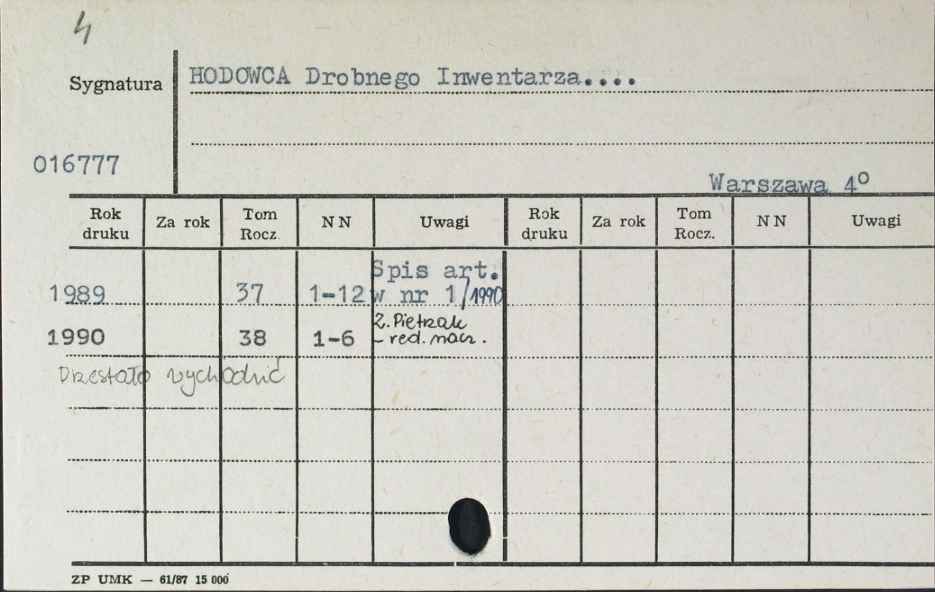 4
Sygnatura
HODOWCA Drobnego Inwentarza....
016777
Warszawa 4°
Rok druku Za rok Tom Rocz. N N Uwagi Rok druku Za rok Tom Rocz. N N Uwagi
Spis art.
1989 37 1-12 w nr 1/1990
Z. Pietrzak
1990 38 1-6 - red. nacz.
Przestało wychodzić
ZP UMK — 61/87 15 000